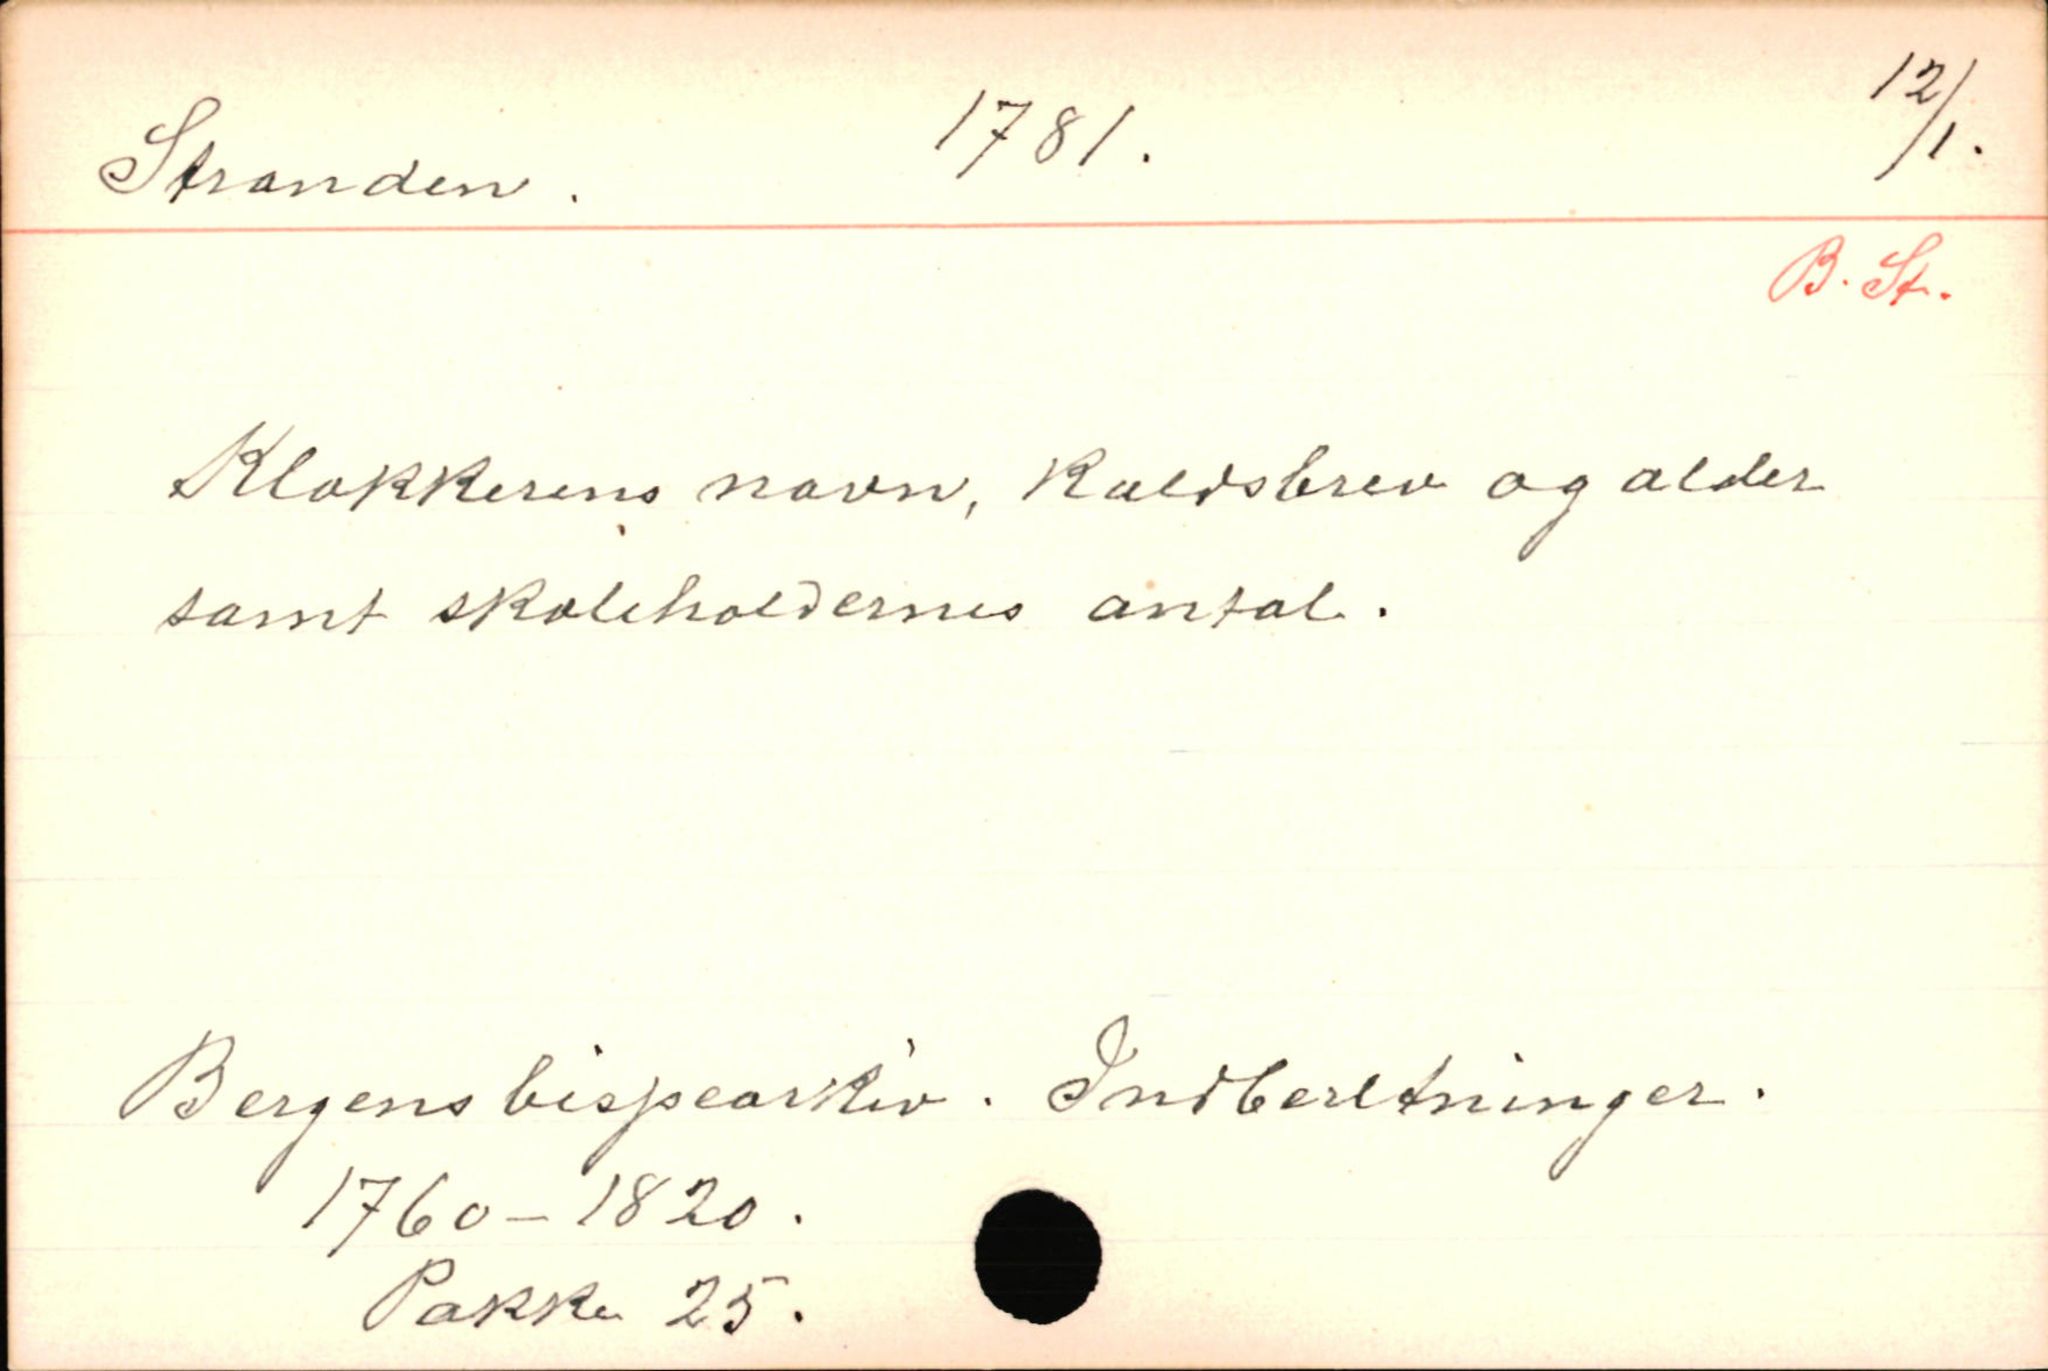 Stranden. 1781. 12/1.
B. St.
Klokkerens navn, kaldsbrev og alder
samt skoleholdernes antal.
Bergens bispearkiv. Indberetninger.
1760-1820.
Pakke 25.